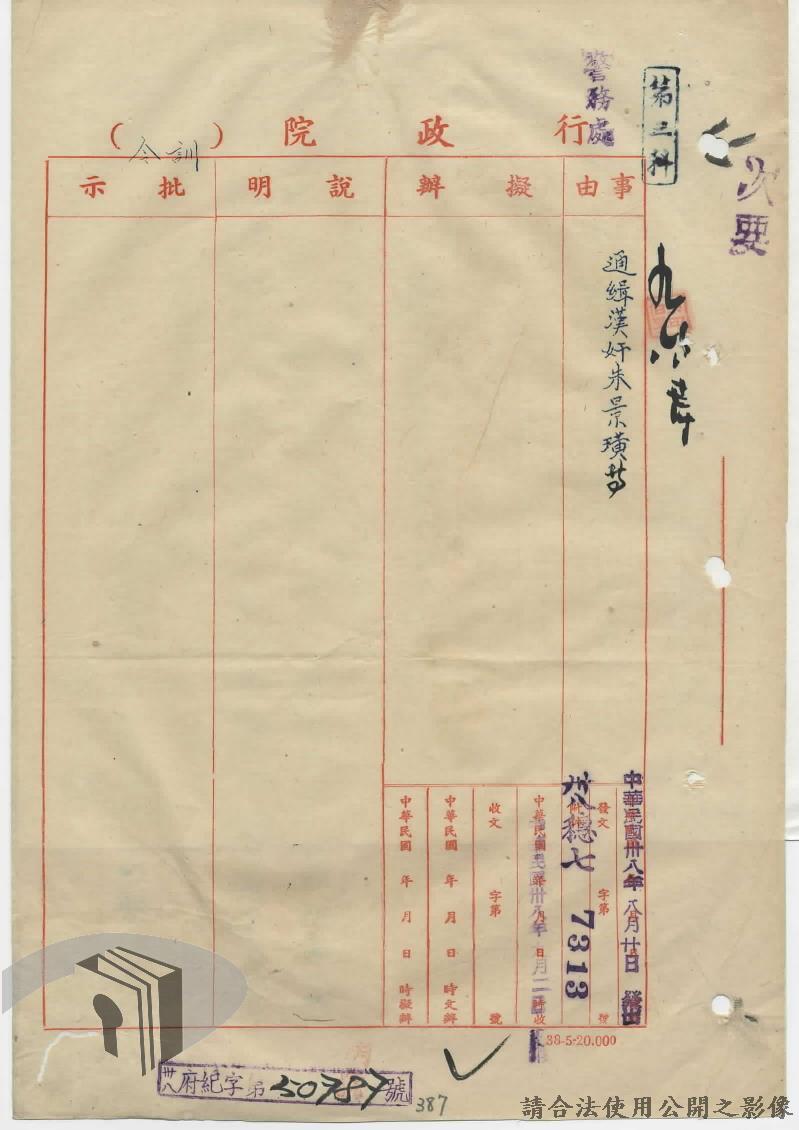 次要
第三科
警務處
行政院（訓令）
事由
擬辦
說明
批示
通緝漢奸朱景璜等
中華民國卅八年八月廿日 發出
發文 字第 號
卅八穗七 7313
收文 字第 號
中華民國 年 月 日 時文辦
中華民國 年 月 日 時擬辦
38-5-20.000
卅八府紀字第50787號
387
請合法使用公開之影像